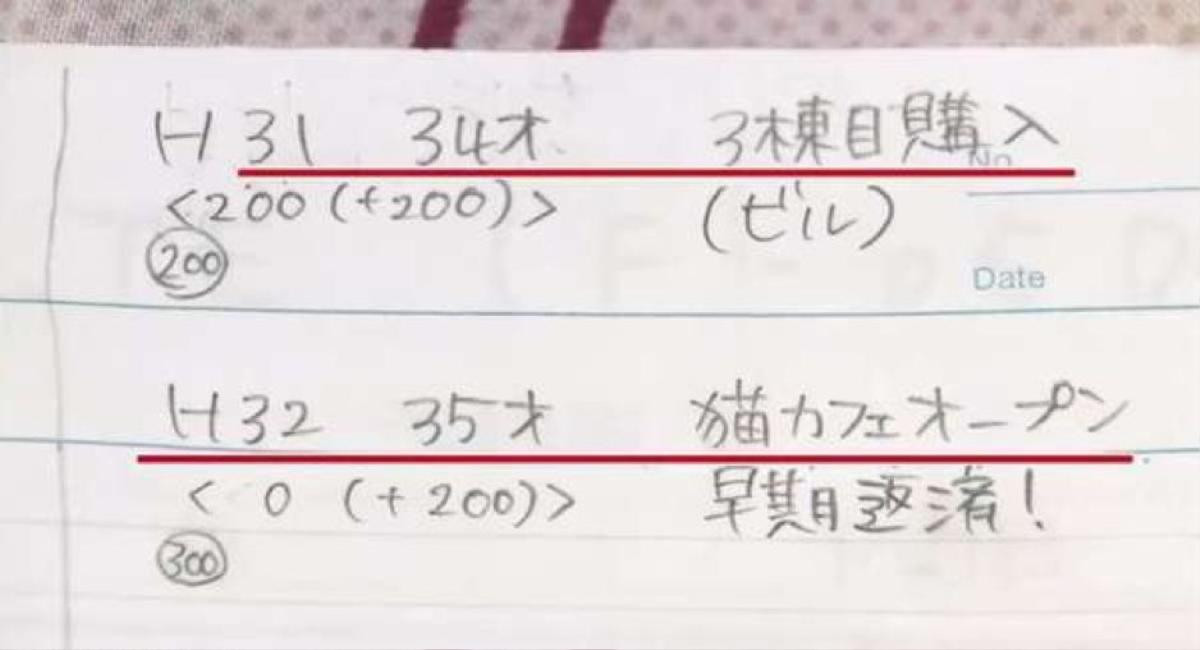 H31 34才 3棟目購入
No
<200(+200)> (ビル)
200
Date
H32 35才 猫カフェオープン
< 0 (+200)> 早期返済!
300